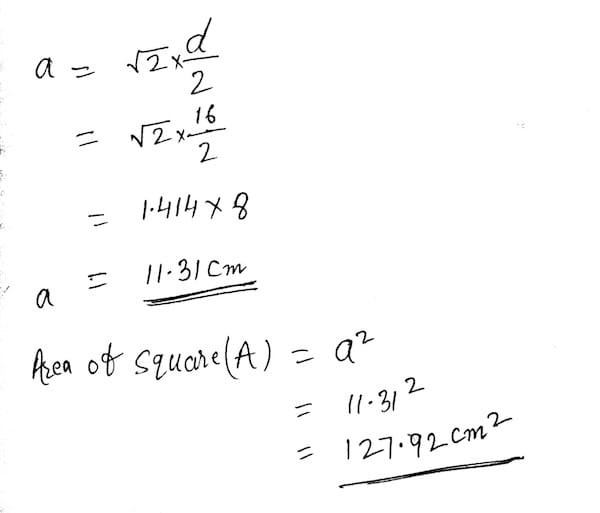 a = √2 × d/2
= √2 × 16/2
= 1.414 × 8
a = 11.31 cm
Area of square (A) = a²
= 11.31²
= 127.92 cm²